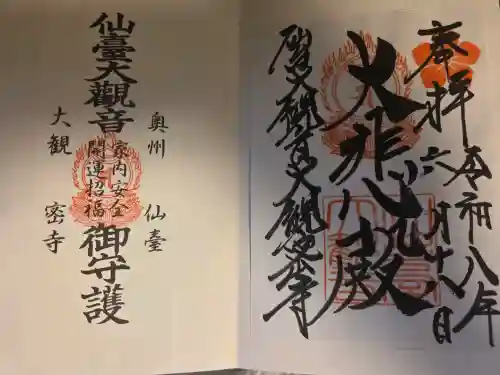 奉拝
令和八年
六月十八日
大悲殿
仙臺大観音大観密寺
奥州 仙臺
仙臺大觀音御守護
家内安全
開運招福
大観 密寺